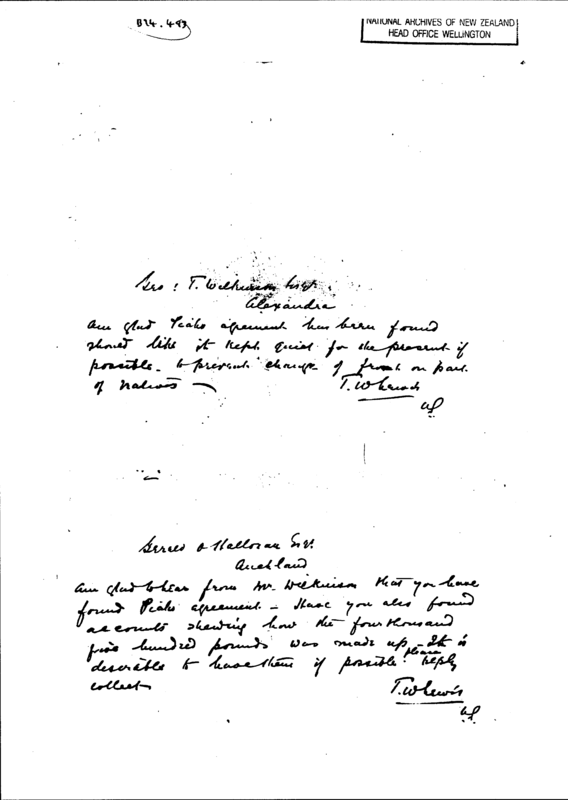 B24.493
NATIONAL ARCHIVES OF NEW ZEALAND
HEAD OFFICE WELLINGTON
Geo: T. Wilkinson Esq.
Alexandra
am glad Piako agreement has been found
should like it kept quiet for the present if
possible - to prevent change of front on part
of natives
T. W Lewis
Gerald O Halloran Esq.
Auckland
am glad to hear from Mr. Wilkinson that you have
found Piako agreement - Have you also found
accounts shewing how the four thousand
five hundred pounds was made up - It is
desirable to have them if possible. please reply
collect
T. W Lewis